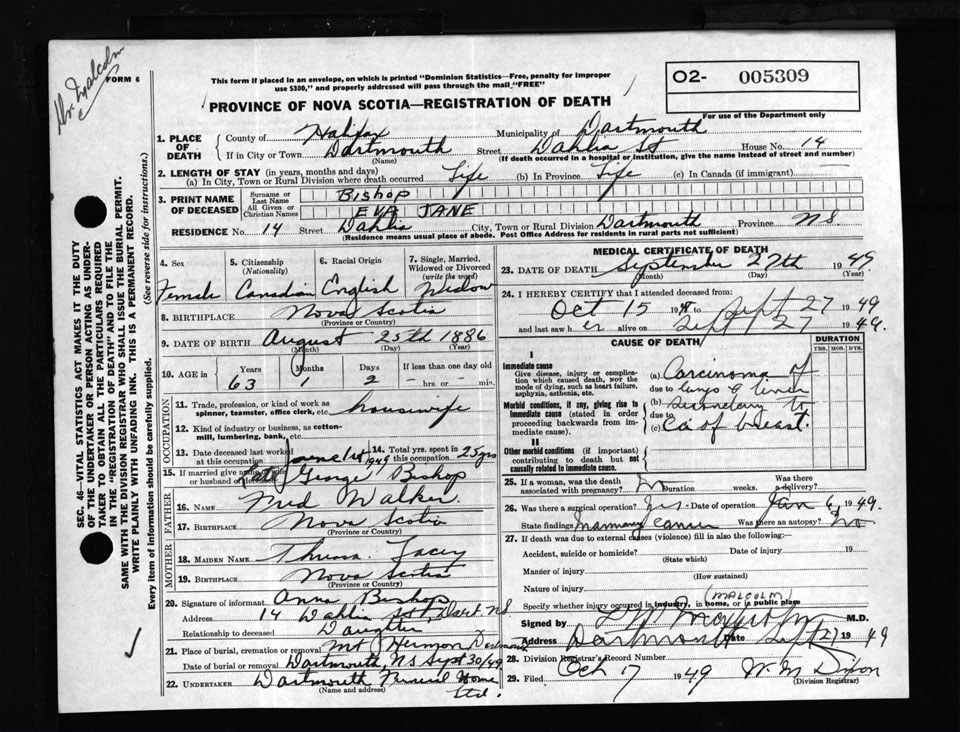 Dr. Malcolm
FORM 6
This form if placed in an envelope, on which is printed "Dominion Statistics—Free, penalty for improper
use $300," and properly addressed will pass through the mail "FREE"
PROVINCE OF NOVA SCOTIA—REGISTRATION OF DEATH
O2- 005309
For use of the Department only
1. PLACE OF DEATH County of Halifax Municipality of Dartmouth
If in City or Town Dartmouth Street Dahlia St House No. 14
(Name) (If death occurred in a hospital or institution, give the name instead of street and number)
2. LENGTH OF STAY (in years, months and days)
(a) In City, Town or Rural Division where death occurred Life (b) In Province Life (c) In Canada (if immigrant)
3. PRINT NAME OF DECEASED Surname or Last Name Bishop
All Given or Christian Names EVA JANE
RESIDENCE No. 14 Street Dahlia City, Town or Rural Division Dartmouth Province N.S.
(Residence means usual place of abode. Post Office Address for residents in rural parts not sufficient)
SEC. 46—VITAL STATISTICS ACT MAKES IT THE DUTY
OF THE UNDERTAKER OR PERSON ACTING AS UNDER-
TAKER TO OBTAIN ALL THE PARTICULARS REQUIRED
IN THE "REGISTRATION OF DEATH" AND TO FILE THE
SAME WITH THE DIVISION REGISTRAR WHO SHALL ISSUE THE BURIAL PERMIT.
WRITE PLAINLY WITH UNFADING INK. THIS IS A PERMANENT RECORD.
Every item of information should be carefully supplied. (See reverse side for instructions.)
4. Sex 5. Citizenship (Nationality) 6. Racial Origin 7. Single, Married, Widowed or Divorced (write the word)
Female Canadian English Widow
8. BIRTHPLACE Nova Scotia
(Province or Country)
9. DATE OF BIRTH August 25th 1886
(Month) (Day) (Year)
10. AGE in Years Months Days If less than one day old
63 1 2 -- hrs. or -- min.
OCCUPATION
11. Trade, profession, or kind of work as
spinner, teamster, office clerk, etc. housewife
12. Kind of industry or business, as cotton-
mill, lumbering, bank, etc.
13. Date deceased last worked at this occupation 1949 14. Total yrs. spent in this occupation 25 yrs
15. If married give name of wife or husband of deceased George Bishop
FATHER
16. NAME Fred Walker
17. BIRTHPLACE Nova Scotia
(Province or Country)
MOTHER
18. MAIDEN NAME Thressa Lacey
19. BIRTHPLACE Nova Scotia
(Province or Country)
20. Signature of informant Anna Bishop
Address 14 Dahlia St, Dart. N.S
Relationship to deceased Daughter
21. Place of burial, cremation or removal Mt Hermon Dartmouth
Date of burial or removal Dartmouth, N.S Sept 30/49
22. UNDERTAKER Dartmouth Funeral Home
(Name and address) Ltd.
MEDICAL CERTIFICATE OF DEATH
23. DATE OF DEATH September 27th 1949
(Month) (Day) (Year)
24. I HEREBY CERTIFY that I attended deceased from:
Oct 15 19 to Sept 27 1949
and last saw her alive on Sept 27 1949.
CAUSE OF DEATH DURATION
YRS. MOS. DYS.
I
Immediate cause
Give disease, injury or complica-
tion which caused death, NOT the
mode of dying, such as heart failure,
asphyxia, asthenia, etc.
(a) Carcinoma of
due to lungs & liver
Morbid conditions, if any, giving rise to
immediate cause (stated in order
proceeding backwards from im-
mediate cause).
(b) secondary to
due to
(c) Ca of breast.
II
Other morbid conditions (if important)
contributing to death but not
causally related to immediate cause.
25. If a woman, was the death associated with pregnancy? No Duration weeks. Was there a delivery?
26. Was there a surgical operation? Yes Date of operation Jan 6, 1949.
State findings Mammary cancer Was there an autopsy? No
27. If death was due to external causes (violence) fill in also the following:—
Accident, suicide or homicide? Date of injury 19
(State which)
Manner of injury
(How sustained)
Nature of injury
Specify whether injury occurred in industry, in home, or in public place
(MALCOLM)
Signed by M.D.
Address Dartmouth Date Sept 27 1949
28. Division Registrar's Record Number
29. Filed Oct 17 1949 W. M. Dixon
(Division Registrar)